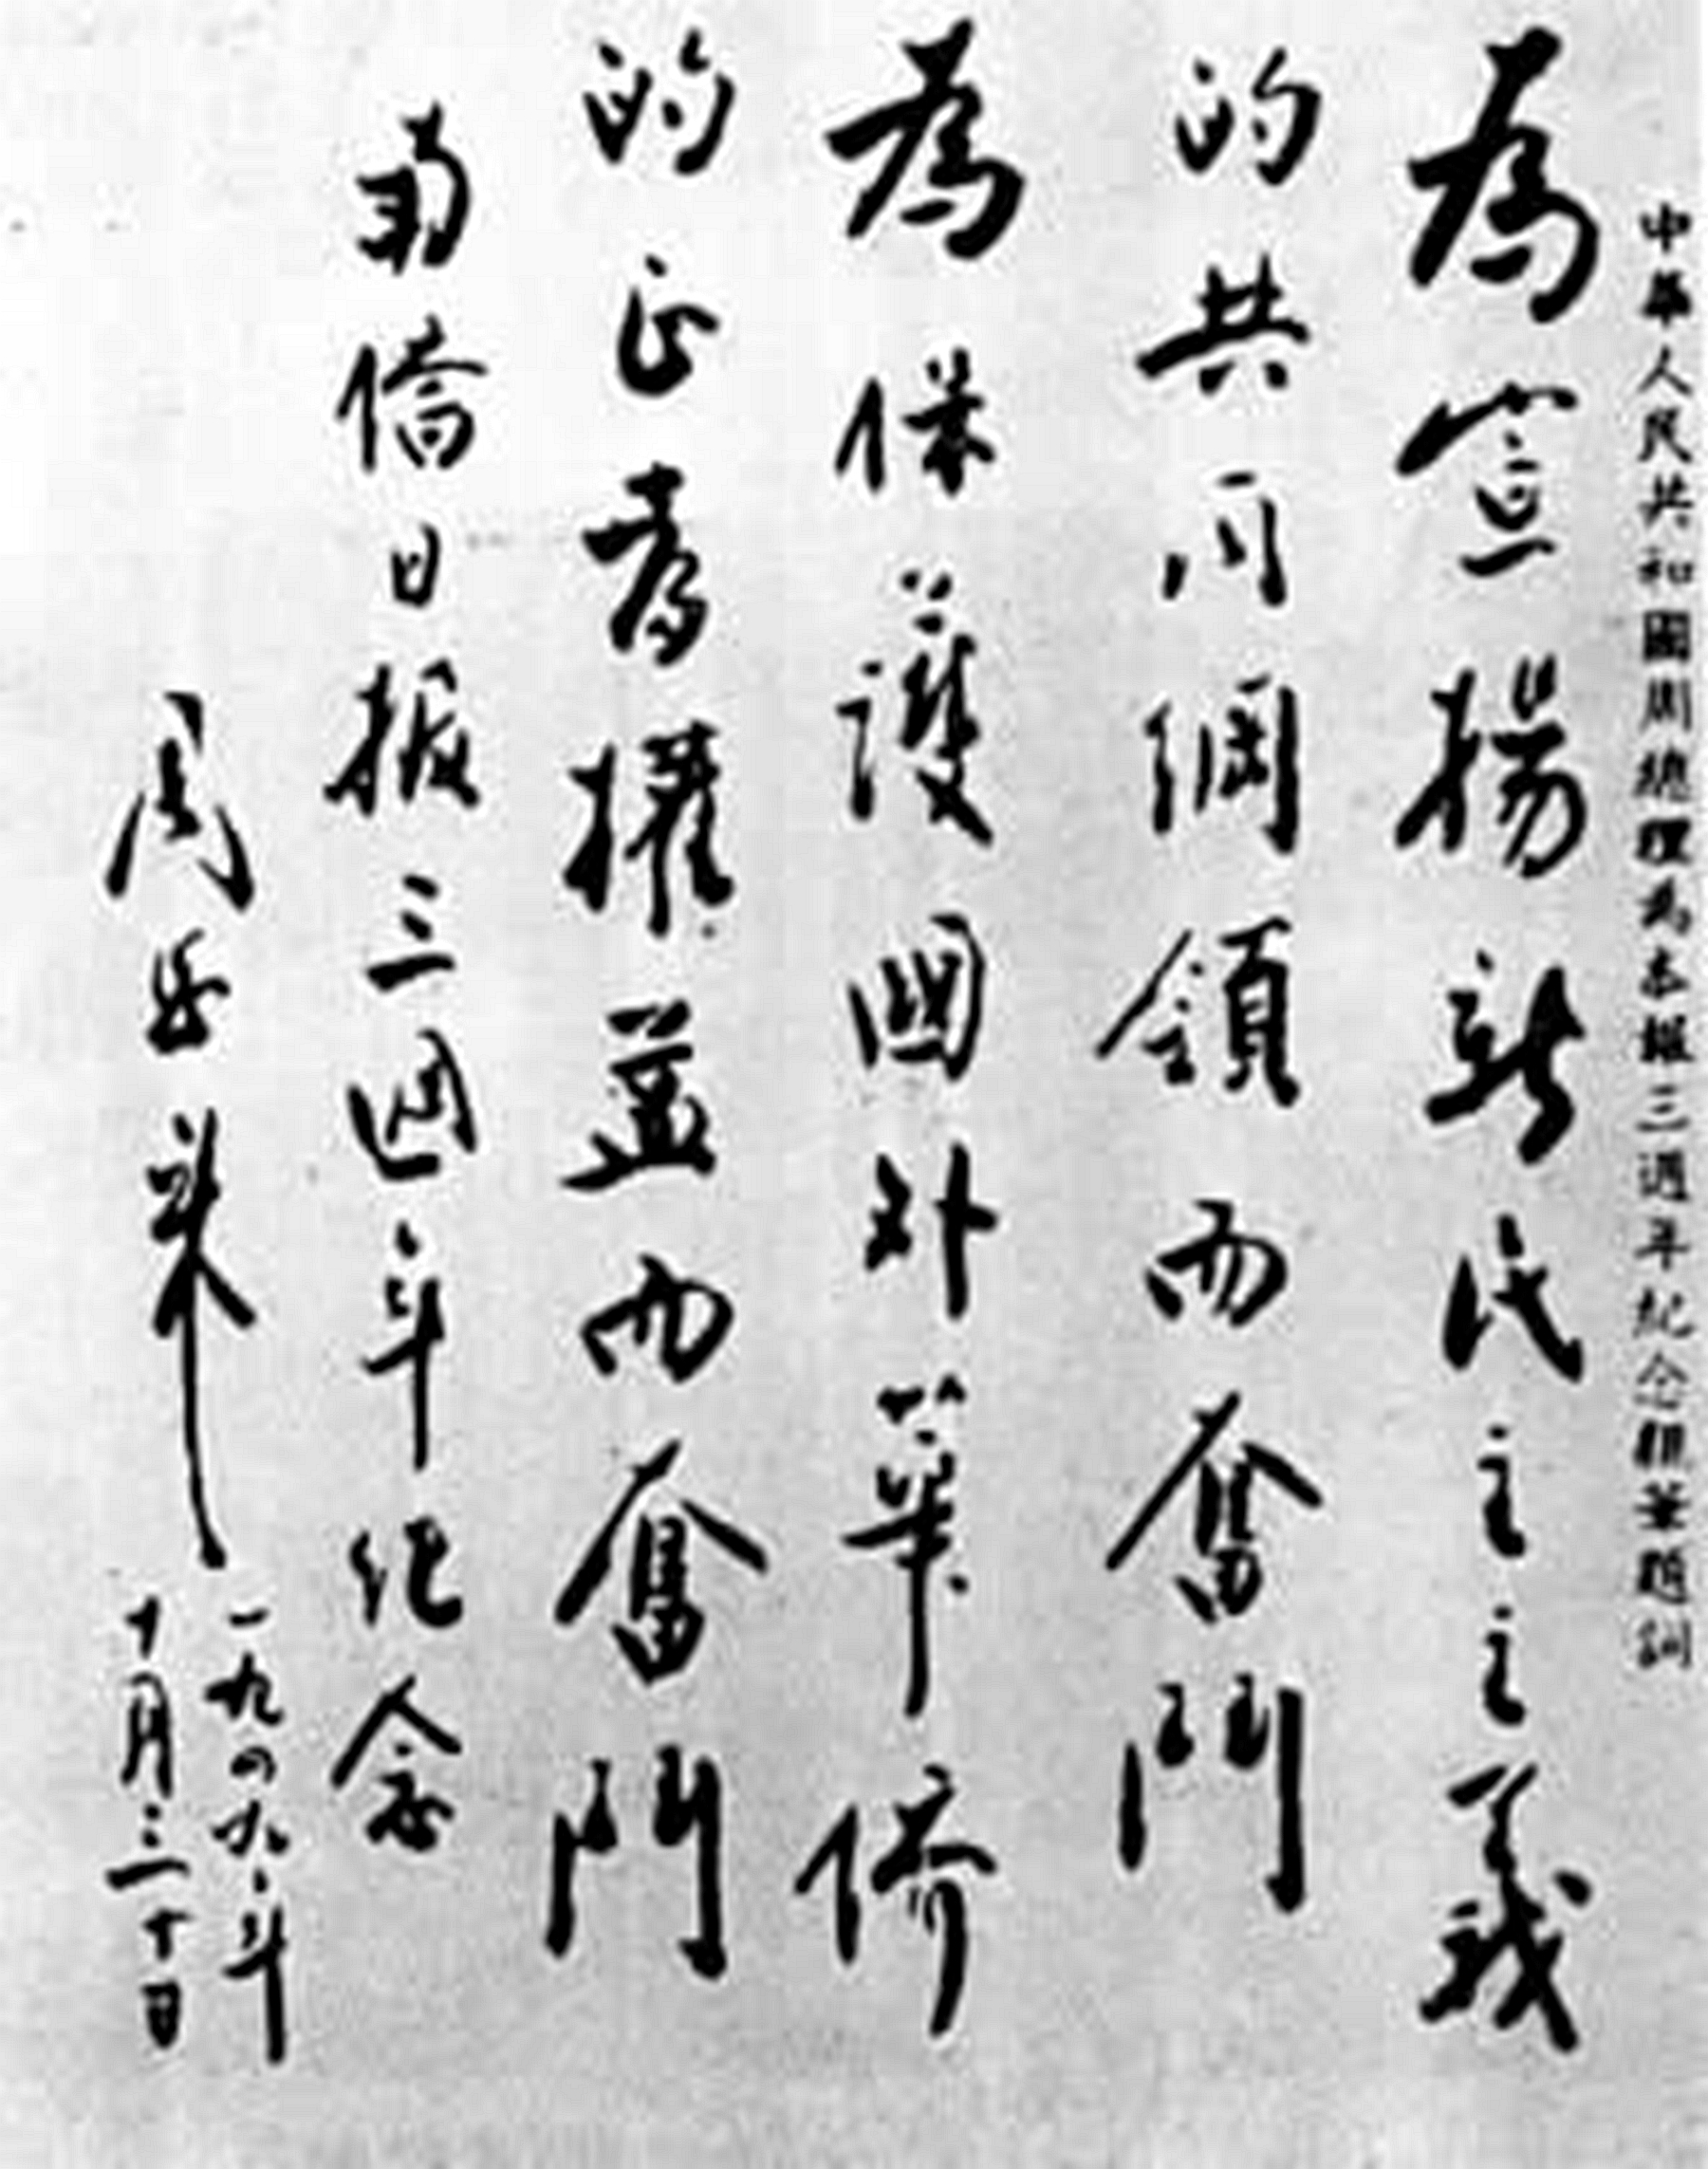 中華人民共和國周總理為本報三週年紀念親筆題詞
為宣揚新民主主義
的共同綱領而奮鬥
為保護國外華僑
的正當權益而奮鬥
南僑日報三週年纪念
周恩来
一九四九年
十月三十日